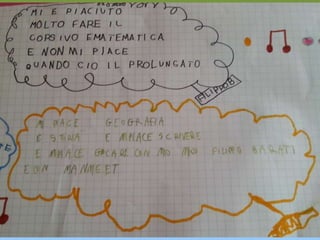 MI E PIACIUTO
MOLTO FARE IL
CORSIVO E MATEMATICA
E NON MI PIACE
QUANDO CIO IL PROLUNGATO
MI PIACE GEOGRAFIA
E STORIA E MI PIACE SCRIVERE
E MI PIACE GIOCARE CON MIO
E CON MANMEET